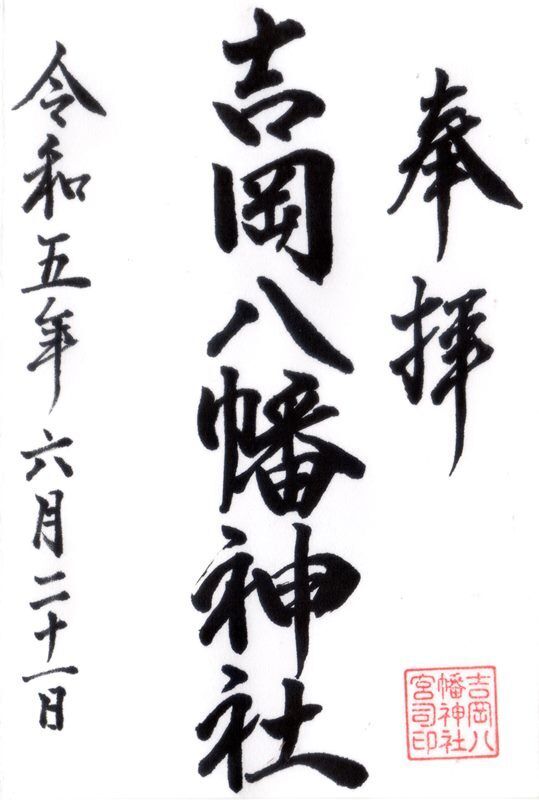 奉拝
吉岡八幡神社
令和五年六月二十一日
吉岡八
幡神社
宮司印